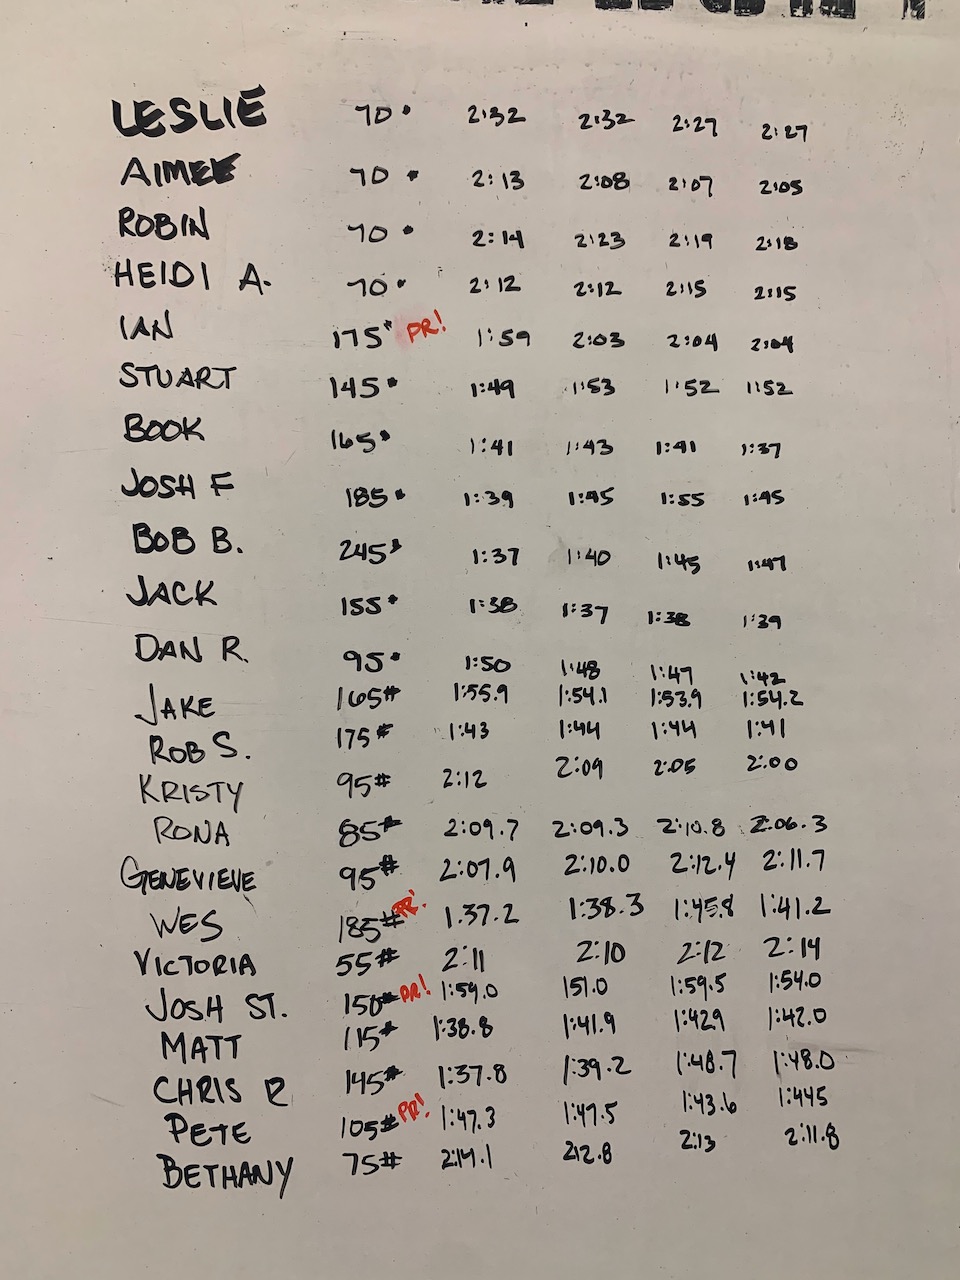 LESLIE 70# 2:32 2:32 2:27 2:27
AIMEE 70# 2:13 2:08 2:07 2:05
ROBIN 70# 2:14 2:23 2:19 2:18
HEIDI A. 70# 2:12 2:12 2:15 2:15
IAN 175# PR! 1:59 2:03 2:04 2:04
STUART 145# 1:49 1:53 1:52 1:52
BOOK 165# 1:41 1:43 1:41 1:37
JOSH F 185# 1:39 1:45 1:55 1:45
BOB B. 245# 1:37 1:40 1:45 1:47
JACK 155# 1:38 1:37 1:38 1:39
DAN R. 95# 1:50 1:48 1:47 1:42
JAKE 165# 1:55.9 1:54.1 1:53.9 1:54.2
ROB S. 175# 1:43 1:44 1:44 1:41
KRISTY 95# 2:12 2:09 2:05 2:00
RONA 85# 2:09.7 2:09.3 2:10.8 2:06.3
GENEVIEVE 95# 2:07.9 2:10.0 2:12.4 2:11.7
WES 185# PR! 1.37.2 1:38.3 1:45.8 1:41.2
VICTORIA 55# 2:11 2:10 2:12 2:14
JOSH ST. 150# PR! 1:59.0 151.0 1:59.5 1:54.0
MATT 115# 1:38.8 1:41.9 1:429 1:42.0
CHRIS R 145# 1:37.8 1:39.2 1:48.7 1:48.0
PETE 105# PR! 1:47.3 1:47.5 1:43.6 1:445
BETHANY 75# 2:14.1 212.8 2:13 2:11.8